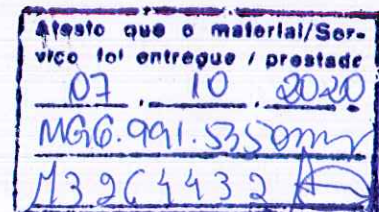 Atesto que o material/Ser-
vico foi entregue / prestado
07 . 10 . 2020
MG6.991.535